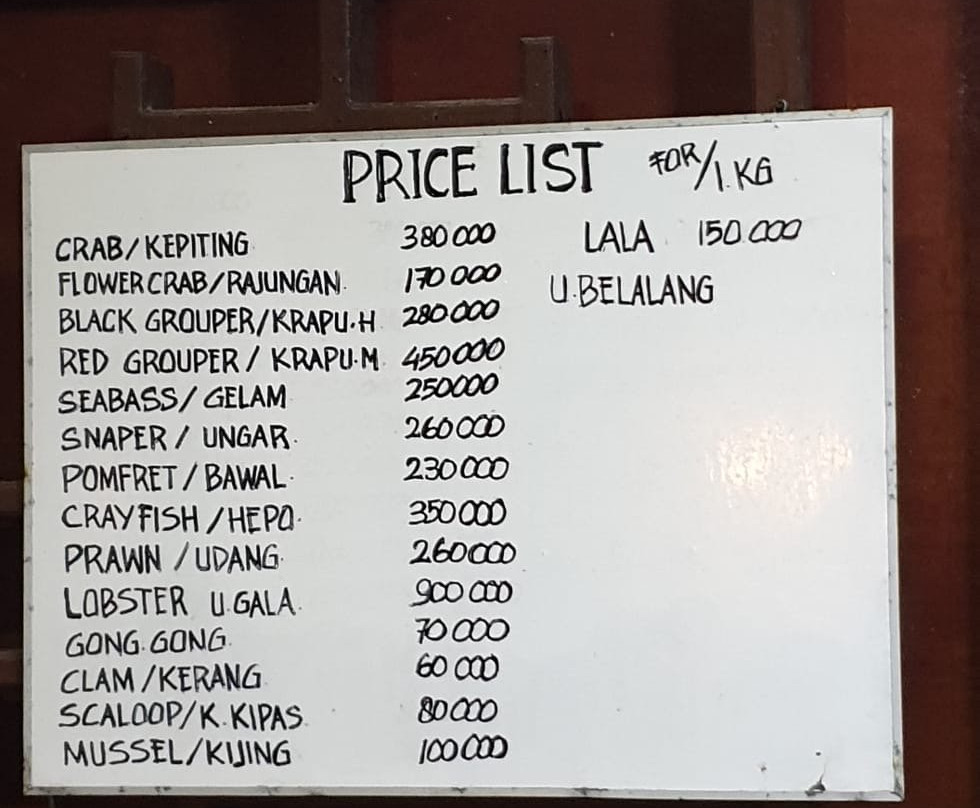 PRICE LIST FOR/1.KG
CRAB/KEPITING 380 000
FLOWER CRAB/RAJUNGAN. 170 000
BLACK GROUPER/KRAPU.H 280 000
RED GROUPER / KRAPU.M 450 000
SEABASS/ GELAM 250000
SNAPER / UNGAR. 260 000
POMFRET / BAWAL. 230 000
CRAYFISH /HEPO. 350 000
PRAWN /UDANG. 260 000
LOBSTER U.GALA. 900 000
GONG.GONG. 70 000
CLAM /KERANG 60 000
SCALOOP/K.KIPAS. 80 000
MUSSEL/KIJING 100 000
LALA 150.000
U.BELALANG